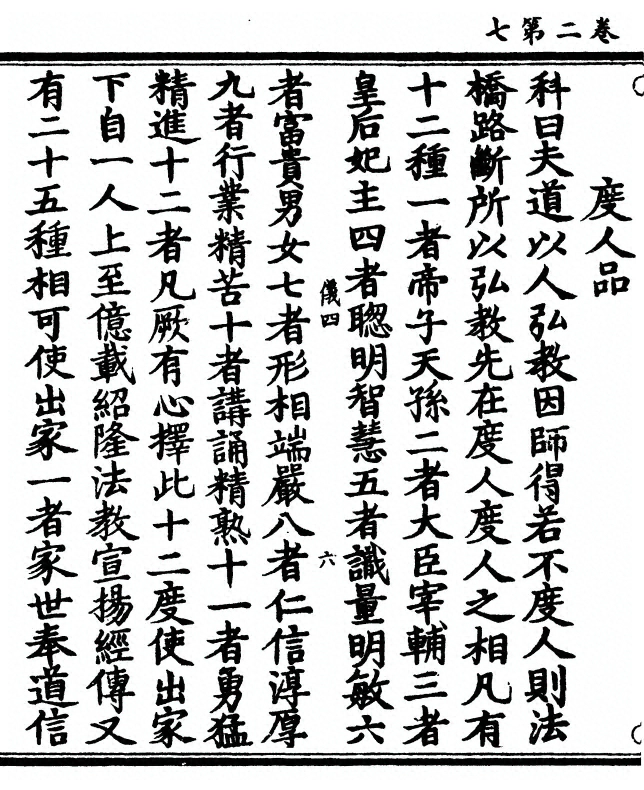 七第二卷
度人品
科曰夫道以人弘教因師得若不度人則法
橋路斷所以弘教先在度人度人之相凡有
十二種一者帝子天孫二者大臣宰輔三者
皇后妃主四者聦明智慧五者識量明敏六
儀四 六
者富貴男女七者形相端嚴八者仁信淳厚
九者行業精苦十者講誦精熟十一者勇猛
精進十二者凡厥有心擇此十二度使出家
下自一人上至億載紹隆法教宣揚經傳又
有二十五種相可使出家一者家世奉道信